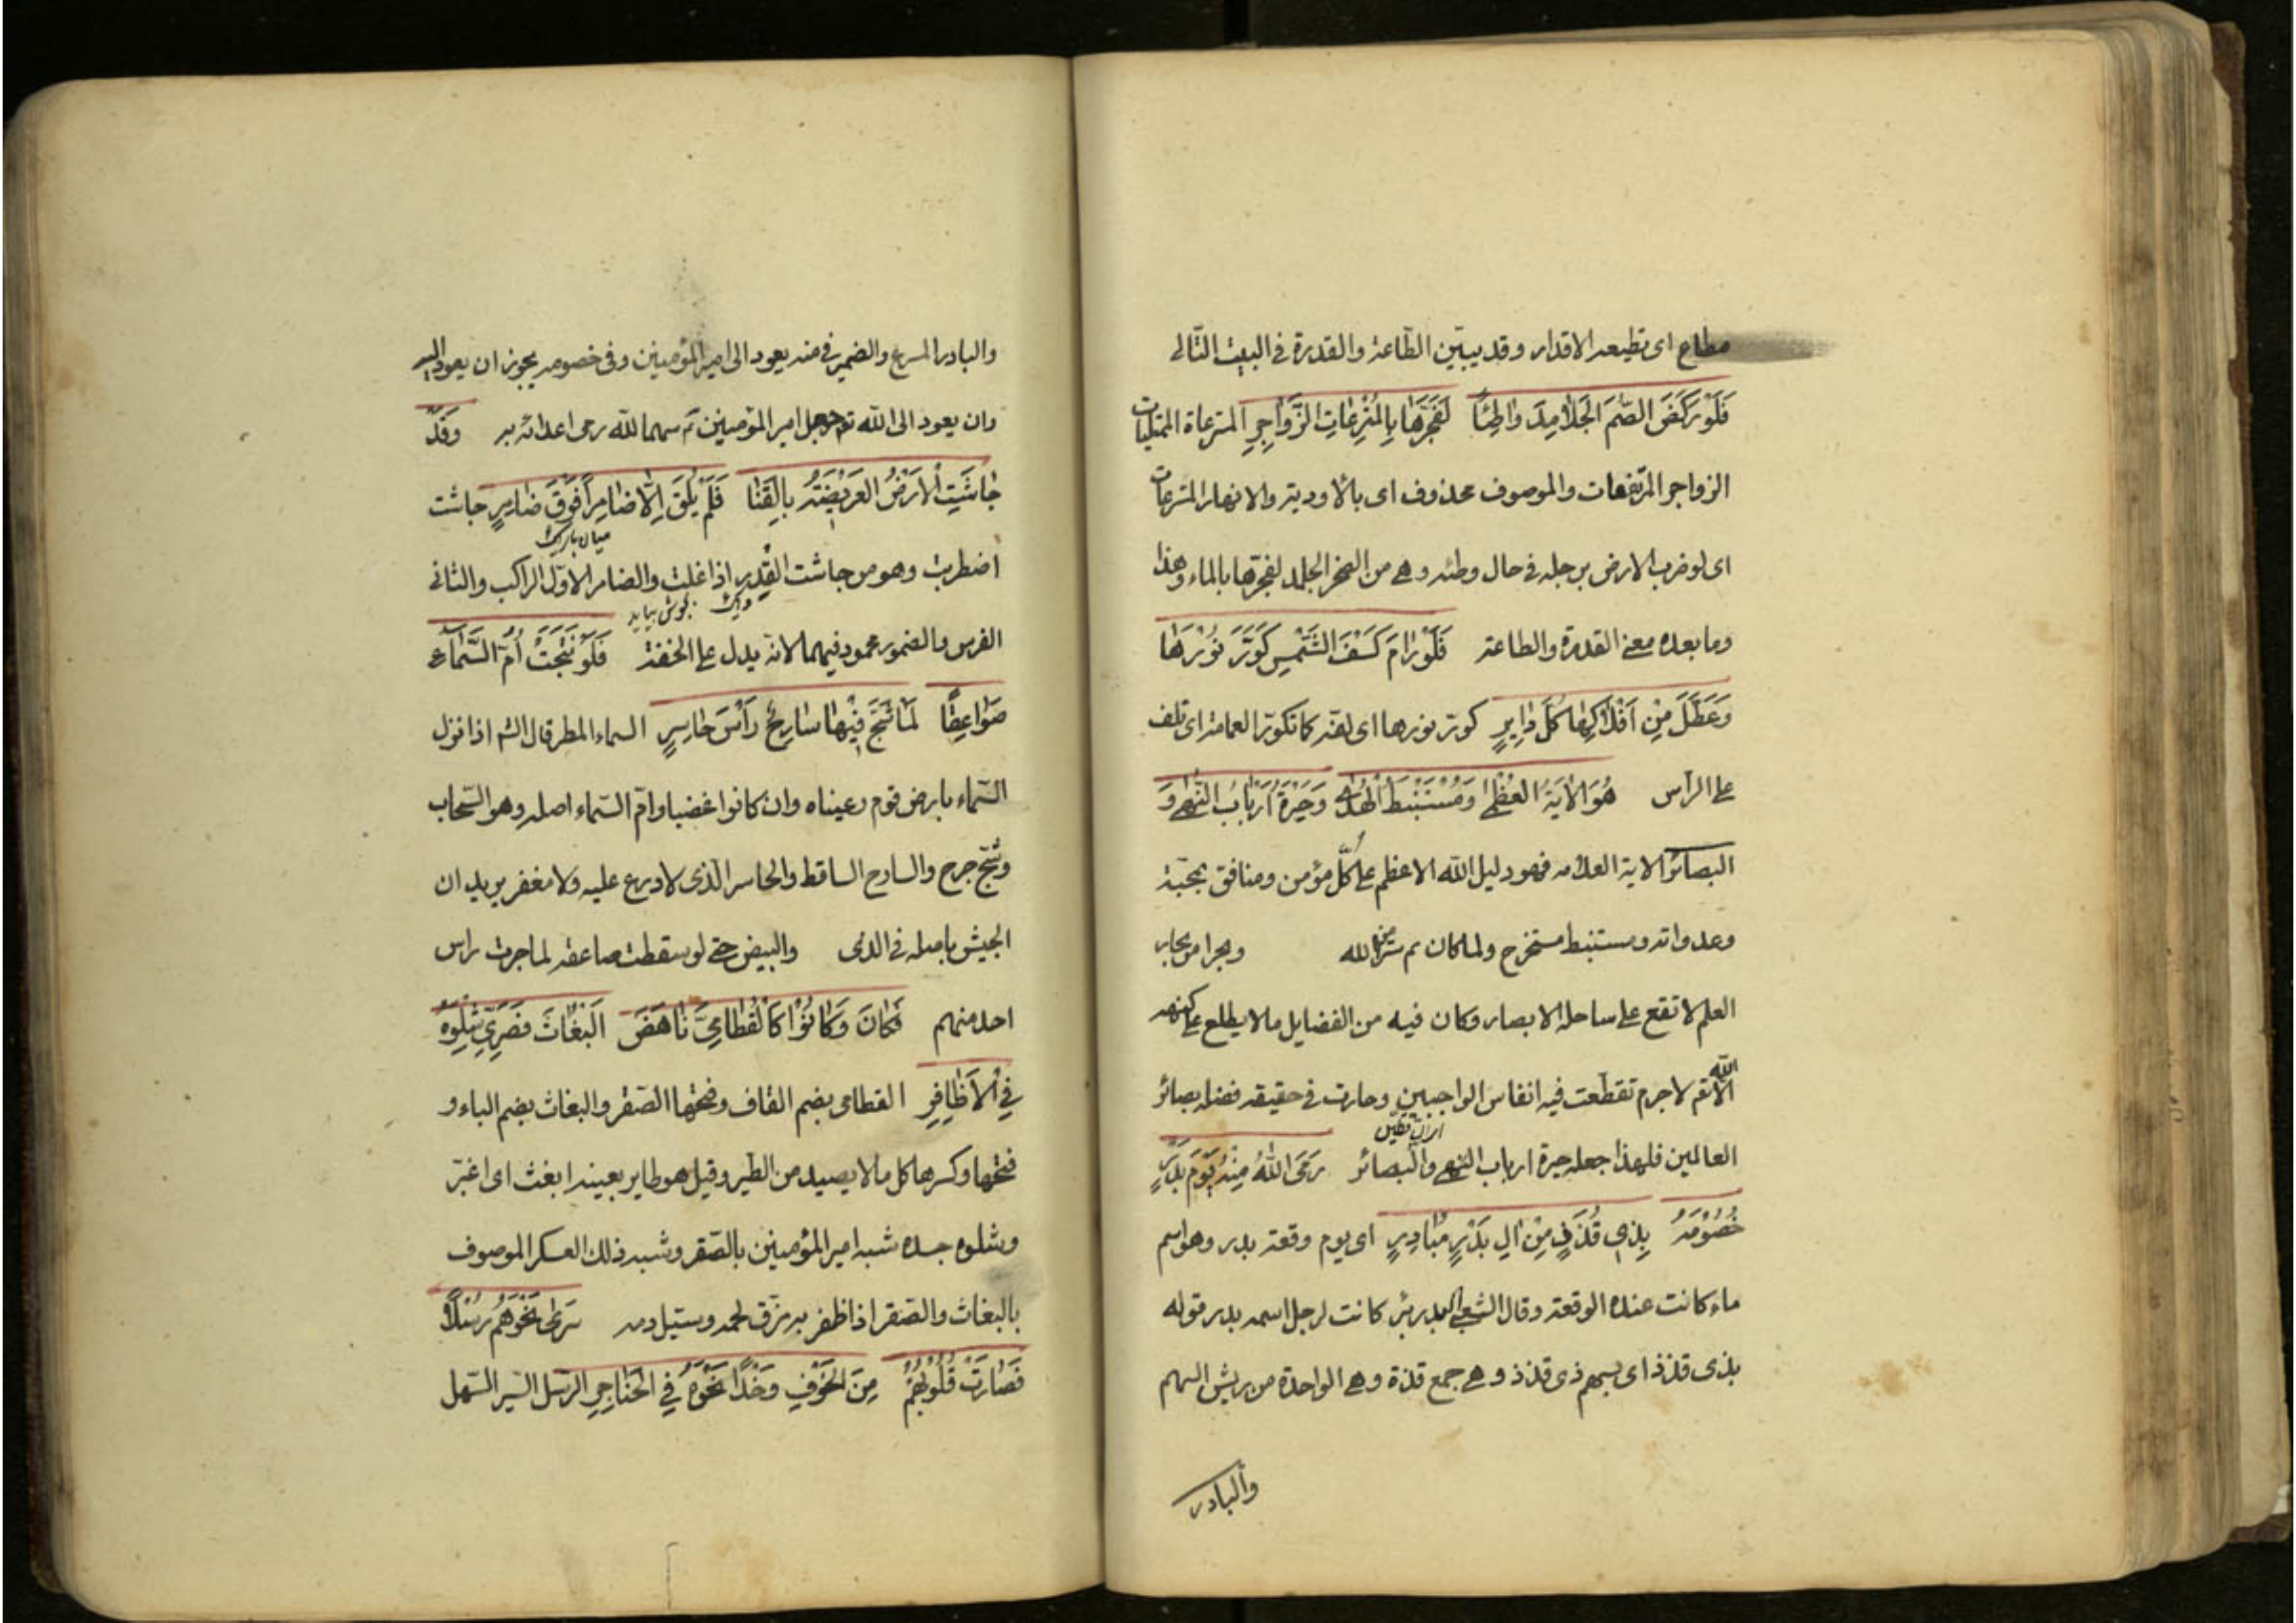 مطاع اى تطيعه الاقدار وقد يبيّن الطّاعة والقدرة فى البيت التّالى
فَلَوْ رَكَضَ الصُّمَ الجَلامِدَ واطِئًا لَفَجَّرَها بِالمُتْرِعاتِ الزَّواجِرِ المترعاة الممتليات
الزواجر المرتفعات والموصوف محذوف اى بالاودية والانهار المترعات
اى لو ضرب الارض برجله فى حال وطئه وهى من الصخر الجلمد لفجرّها بالماء وهذا
وما بعده معنى القدرة والطاعة فَلَوْ رامَ كَسْفَ الشَّمْسِ كَوَّرَ نُوْرَها
وَعَطَّلَ مِنْ اَفْلاكِها كُلَّ دايِرٍ كوّر نورها اى لفّه كما تكوّر العمامة اى تلف
على الراس هُوَ الايَةُ العُظْمٰى وَمُسْتَنْبِطُ الهُدٰى وَحَيْرَةُ اَرْبابِ النُّهٰى وَ
البصائر الاية العلامه فهو دليل الله الاعظم على كلّ مؤمن ومنافق بمحبّة
وعداوته ومستنبط مستخرج ولما كان ع سرّا من الله وبحرا من بحار
العلم لا تقع على ساحله الابصار وكان فيه من الفضايل ما لا يطلع على كنهه
الا الله تع لا جرم تقطّعت فيه انفاس الواجبين وحارت فى حقيقه فضله بصائر
العالمين فلهذا جعله حيرة ارباب النهى والبصائر رَمَى اللهُ مِنْهُ يَوْمَ بَدْرٍ
خُصُوْمَهُ بِذى قُذَذٍ مِنْ الِ بَدْرٍ مُبادِرٍ اى يوم وقعة بدر وهو اسم
ماء كانت عنده الوقعة وقال الشعبى بدر بئر كانت لرجل اسمه بدر قوله
بذى قذذ اى بسهم ذى قذذ وهى جمع قذة وهى الواحدة من ريش السهم
والبادر
والبادر المسرع والضمير فى منه يعود الى امير المؤمنين وفى خصومه يجوز ان يعود اليه
وان يعود الى الله تع جعل امير المؤمنين ع سهما لله رمى اعدائه به وَقَدْ
جاشَتِ الاَرْضُ العَرِيْضَةُ بِالقَنا فَلَمْ يُلْقَ اِلّا ضامِراً فَوْقَ ضامِرٍ جاشت
ميان باريك
اضطربت وهو من جاشت القدر اذا غلت والضامر الاوّل الراكب والثانى
ديك بجوش بيايد
الفرس والضمور محمود فيهما لانه يدل على الخفة فَلَوْ نَتَجَتْ اُمُّ السَّماءِ
صَواعِقًا لَما شَجَّ فِيْها سارِحٌ رَاْسَ حاسِرٍ السماء المطر قال الش اذا نزل
السّماء بارض قوم رعيناه وان كانوا غضبا وامّ السّماء اصله وهو السّحاب
وشجّ جرح والسارح الساقط والحاسر الّذى لا درع عليه ولا مغفر يريد ان
الجيش باصله فى الدى والبيض حتى لو سقطت صاعقه لما جرت راس
احد منهم فَكانَ وَكانُوْا كَالْقُطامِىِّ ناهَضَ البَغاثَ فَصَرّى شِلْوَهُ
فِى الاَظافِرِ القطامى بضم القاف وفتحها الصّقر والبغاث بضم الباء و
فتحها وكسرها كل ما لا يصيد من الطير وقيل هو طاير بعينه ابغث اى اغبّر
وشلوه جسده شبه امير المؤمنين بالصّقر وشبه ذلك العسكر الموصوف
بالبغاث والصّقر اذا ظفر به مزّق لحمه وستيل دمه سَرى نَحْوَهُمْ رِسْلاً
فَصارَتْ قُلُوْبُهُمْ مِنَ الخَوْفِ وَخْدًا نَحْوَهُ فِى الحَناجِرِ الرسل السّير السّهل